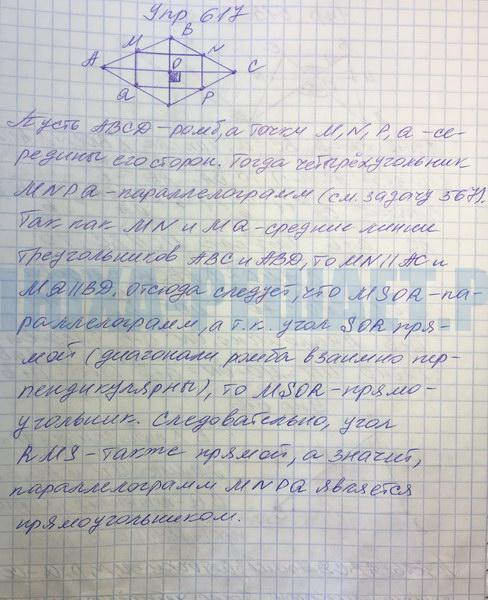 Упр 617
B
M
N
A
O
C
Q
P
Пусть ABCD-ромб, а точки M, N, P, Q -се-
редины его сторон. Тогда четырёхугольник
MNPQ -параллелограмм (см. задачу 567).
Так как MN и MQ - средние линии
треугольников ABC и ABD, то MN || AC и
MQ || BD. отсюда следует, что MSOR -па-
раллелограмм, а т.к. угол SOR пря-
мой (диагонали ромба взаимно пер-
пендикулярны), то MSOR -прямо-
угольник. Следовательно, угол
RMS - также прямой, а значит,
параллелограмм MNPQ является
прямоугольником.